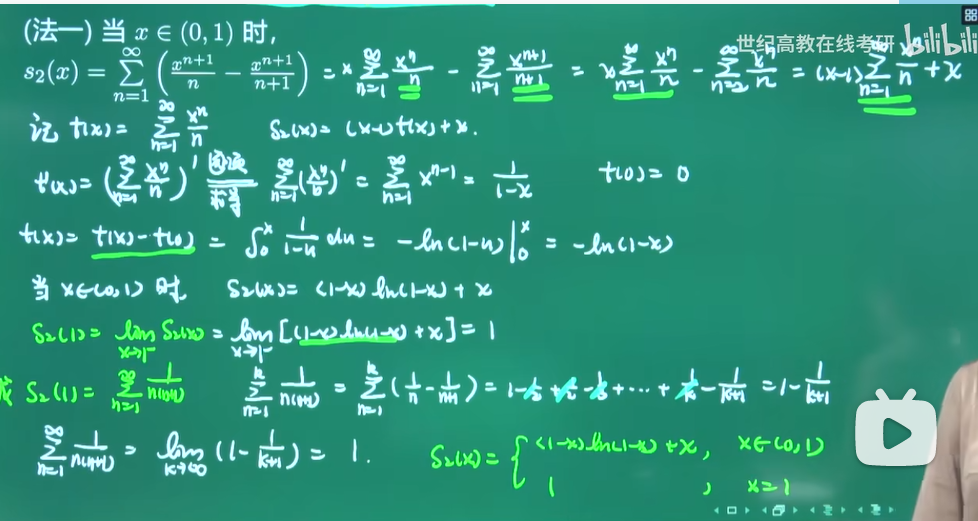 (法一) 当 x ∈ (0, 1) 时,
世纪高教在线考研 bilibili
s₂(x) = ∑_{n=1}^{∞} (x^{n+1}/n − x^{n+1}/(n+1)) = x ∑_{n=1}^{∞} x^n/n − ∑_{n=1}^{∞} x^{n+1}/(n+1) = x ∑_{n=1}^{∞} x^n/n − ∑_{n=2}^{∞} x^n/n = (x-1) ∑_{n=1}^{∞} x^n/n + x
记 t(x) = ∑_{n=1}^{∞} x^n/n S₂(x) = (x-1)t(x) + x.
t'(x) = (∑_{n=1}^{∞} x^n/n)' 逐项求导 ∑_{n=1}^{∞} (x^n/n)' = ∑_{n=1}^{∞} x^{n-1} = 1/(1-x) t(0) = 0
t(x) = t(x) - t(0) = ∫₀^x 1/(1-u) du = -ln(1-u)|₀^x = -ln(1-x)
当 x∈(0,1) 时, S₂(x) = (1-x) ln(1-x) + x
S₂(1) = lim_{x→1⁻} S₂(x) = lim_{x→1⁻} [(1-x)ln(1-x) + x] = 1
或 S₂(1) = ∑_{n=1}^{∞} 1/(n(n+1)) ∑_{n=1}^{k} 1/(n(n+1)) = ∑_{n=1}^{k} (1/n - 1/(n+1)) = 1 - 1/2 + 1/2 - 1/3 + ⋯ + 1/k - 1/(k+1) = 1 - 1/(k+1)
∑_{n=1}^{∞} 1/(n(n+1)) = lim_{k→∞} (1 - 1/(k+1)) = 1. S₂(x) = { (1-x)ln(1-x) + x, x∈(0,1)
1 , x=1